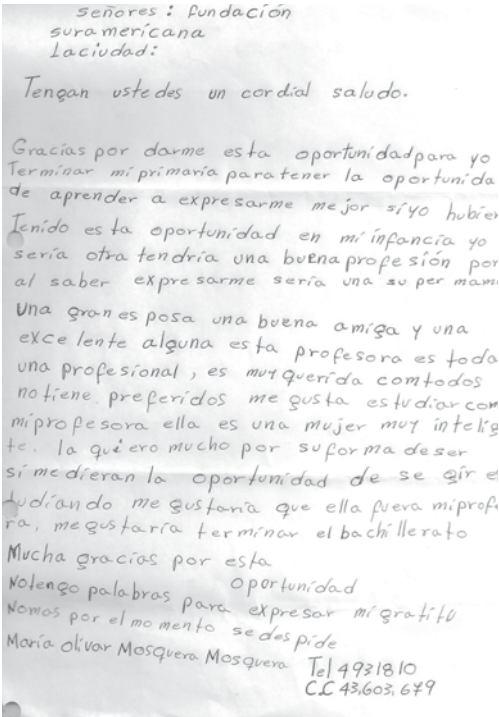 señores: fundación
suramericana
Laciudad:
Tengan ustedes un cordial saludo.
Gracias por darme esta oportunidadpara yo
Terminar miprimaria paratener la oportunida
de aprender a expresarme mejor siyo hubier
Tenido esta oportunidad en miinfancia yo
sería otra tendria una buenaprofesión por
al saber expresarme sería una super mam
Una gran esposa una buena amiga y una
excelente alguna esta profesora es toda
una profesional, es muy querida comtodos
notiene preferidos me gusta estudiar com
miprofesora ella es una mujer muy intelig
te. la quiero mucho por suforma deser
simedieran la oportunidad de se gir e
tudiando me gustaria que ella fuera miprofe
ra, megustaría terminar el bachillerato
Mucha gracias por esta
oportunidad
Notengo palabras para expresar migratitu
Nomas por el momento sedespide
María Olivar Mosquera Mosquera Tel 4931810
C.C 43,603,679